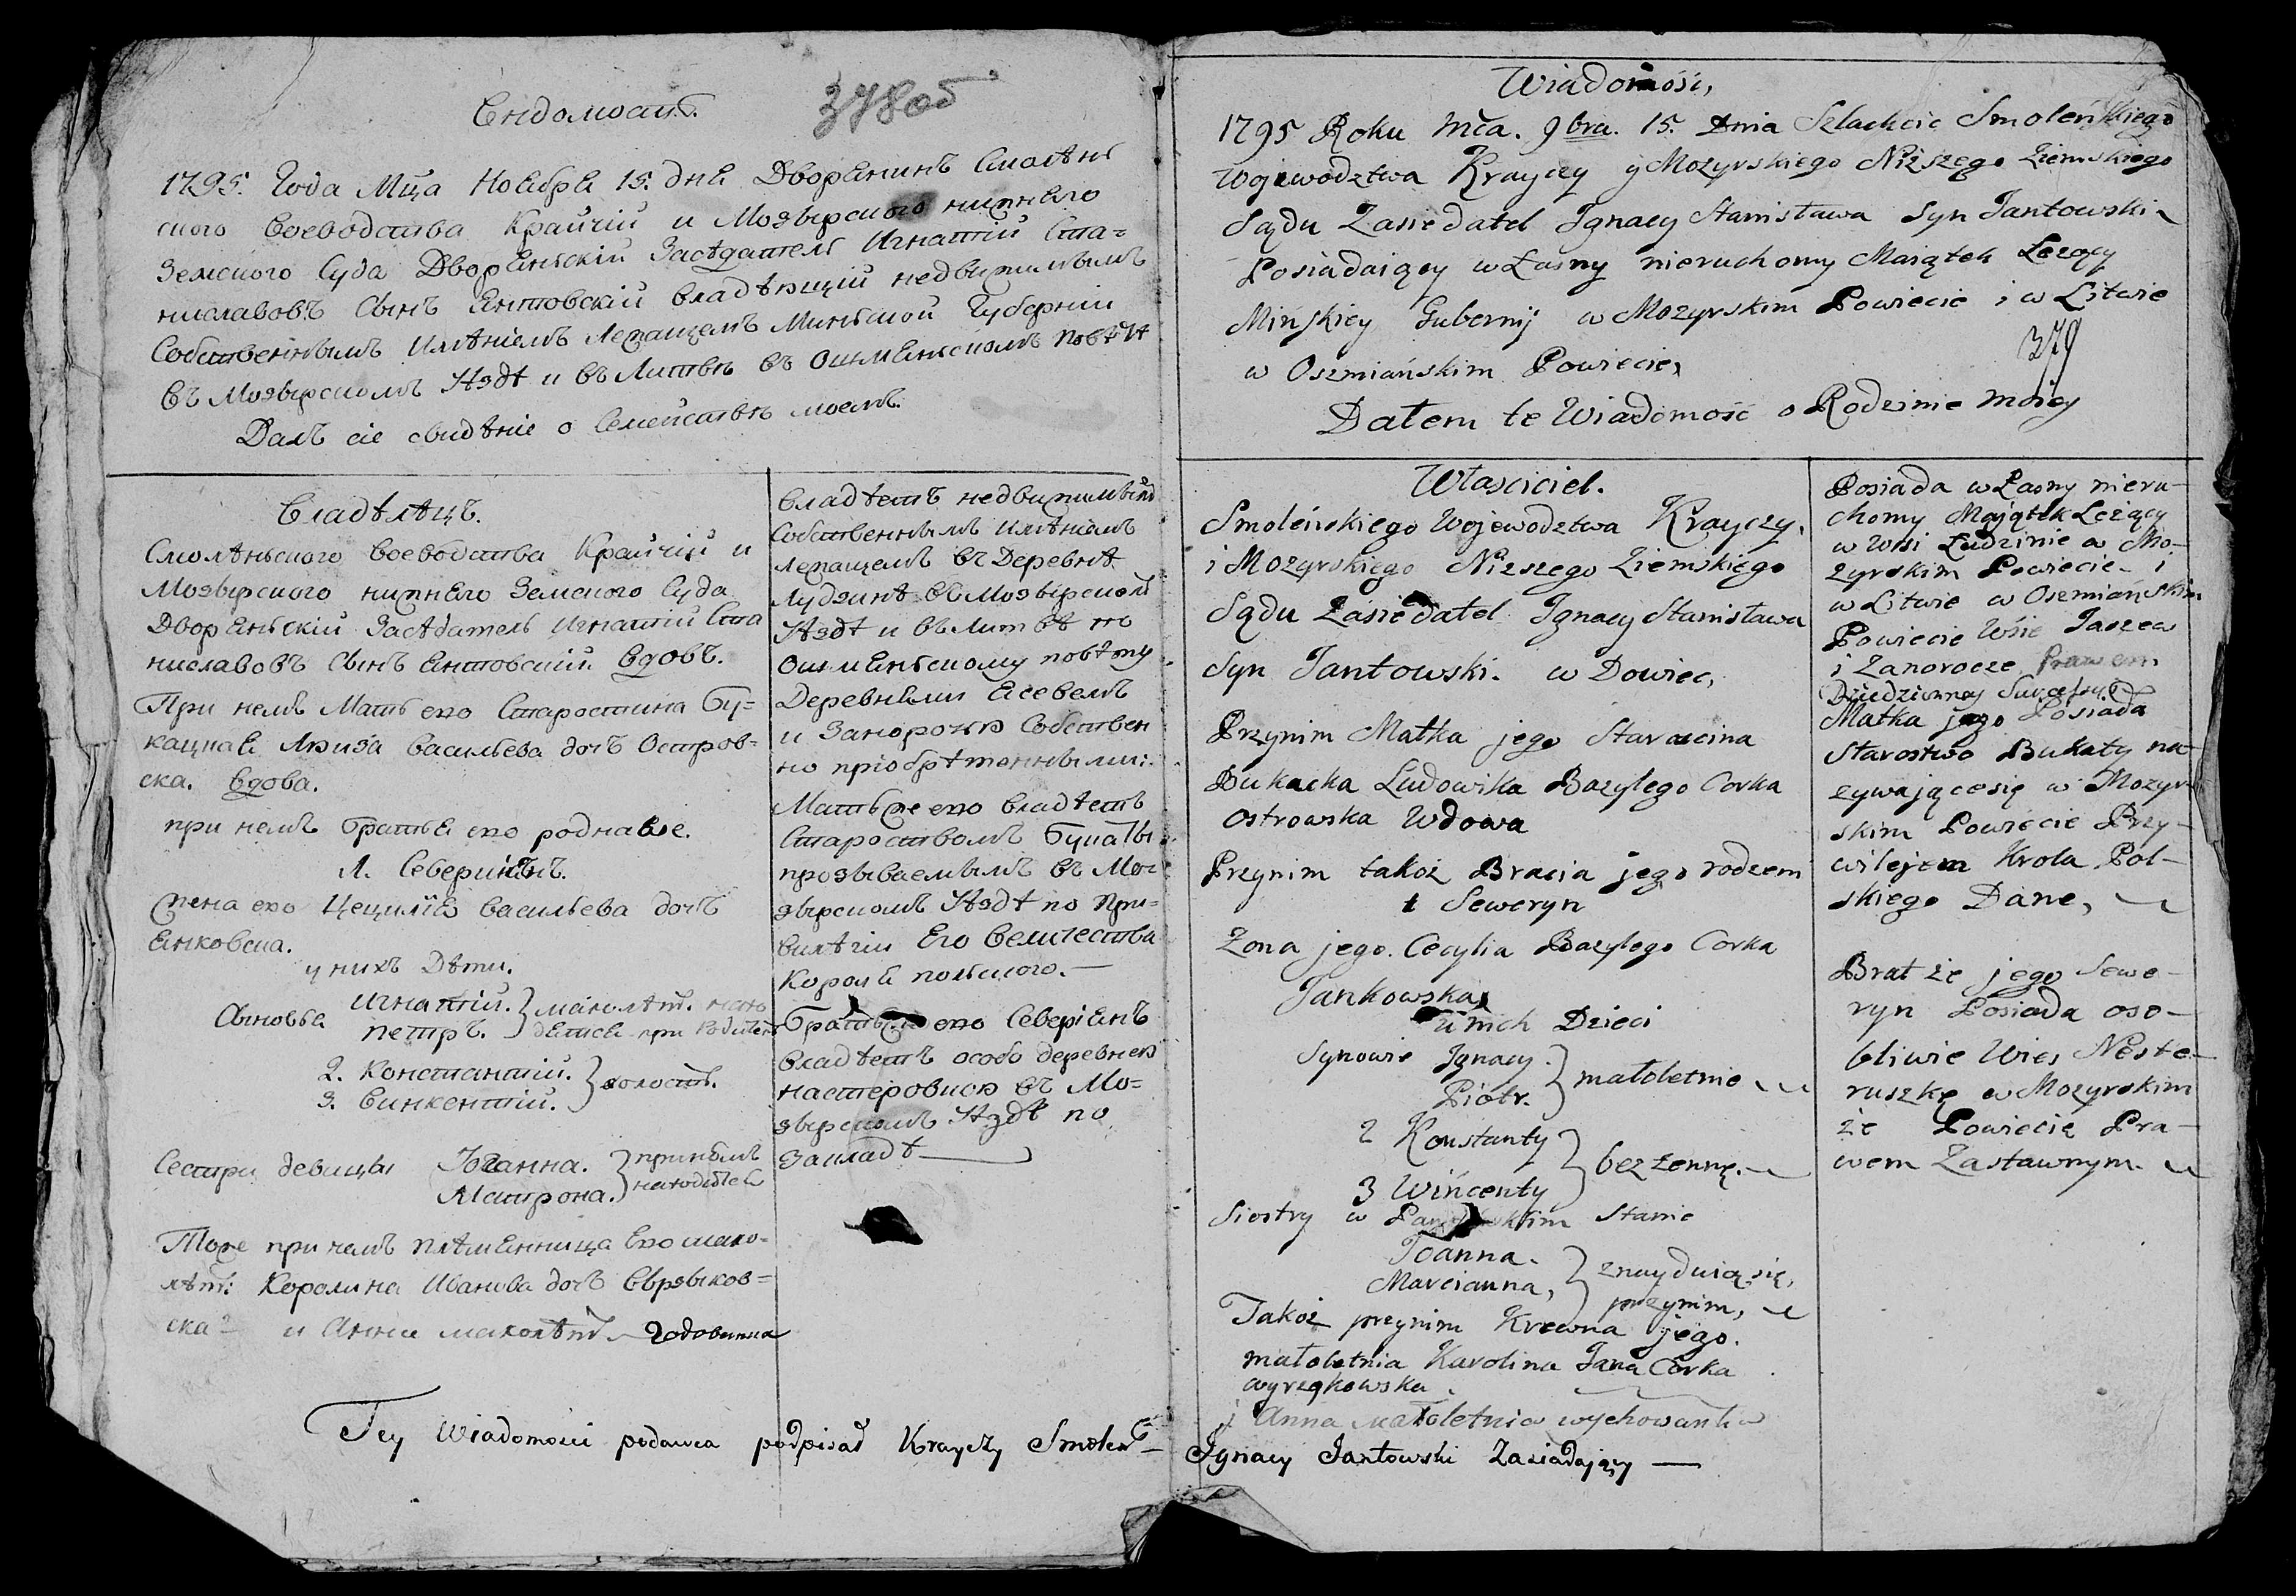 Видомость.
378об
1795. Года Мца Ноабря 15. дня Дворянинъ Смолѣнь
ского воеводства Крайчій и Мозырского нижняго
Земского Суда Дворяньскій Засѣдатель Игнатій Ста=
ниславовъ Сынъ Янтовскій владѣющій недвижимымъ
Собственнымъ имѣніемъ лежащемъ Миньской Губерніи
въ Мозырскомъ Уѣздѣ и въ Литвѣ въ Ошмяньскомъ повѣтѣ
Далъ сіе свидѣніе о Семействѣ моемъ.
Владѣлѣцъ.
Смолѣньского воеводства Крайчій и
Мозырского нижняго Земского Суда
Дворяньскій Засѣдатель Игнатій Ста
ниславовъ Сынъ Янтовскій. вдовъ.
При немъ Мать его Старостина Бу=
кацкая Люиза васильева дочь Остров=
ска. вдова.
при немъ братья его роднае.
1. Северинъ.
Жена его Цецилія васильева дочь
Янковска.
у нихъ Дѣти.
Сыновья Игнатій. } малолѣт. нахо
петръ. } дятся при Родителѣ
2. Константій. } холост.
3. Винкентій. }
Сестри девицы Іоганна. } при немъ
Матрона. } находятся
Тоже при немъ племянница его мало=
лѣт: Королина Иванова дочь Выржиков=
ска и Анна малолѣт годованка
Владѣетъ недвижимымъ
Собственнымъ имѣніемъ
лежащемъ въ Деревнѣ
Лудзинѣ въ Мозырскомъ
Уѣздѣ и въ Литвѣ по
ошмяньскому повѣту
Деревнями Ясевемъ
и Занорочю Собствен
но пріобрѣтеннымии:
Мать же его владѣетъ
Староствомъ Букаты
прозываемымъ въ Мо=
зырскомъ Уѣздѣ по при=
вилѣгіи Его величества
Короля польского.—
Братъ его Северіанъ
владѣетъ особо деревнею
настеровскю въ Мо=
зырскомъ Уѣздѣ по
закладѣ—
Wiadomość,
1795 Roku Mca. 9bra. 15. Dnia Szlachcic Smoleńskiego
Wojewodztwa Krayczy y Mozyrskiego Niższego Ziemskiego
Sądu Zasiedatel Jgnacy Stanisława Syn Jantowski
Posiadaiący własny nieruchomy Maiątek Leżący
Minskiey Gubernij w Mozyrskim Powiecie i w Litwie
w Oszmiańskim Powiecie,
379
Dałem te Wiadomość o Rodzinie moiey
Własciciel.
Smoleńskiego Wojewodztwa Krayczy,
i Mozyrskiego Niższego Ziemskiego
Sądu Zasiedatel Jgnacy Stanisława
Syn Jantowski. w Dowiec,
Przynim Matka jego Staroscina
Bukacka Ludowika Bazylego Corka
Ostrowska Wdowa
Przynim takoż Bracia jego rodzeni
1 Seweryn
Zona jego. Cecylia Bazylego Corka
Jankowska,
u nich Dzieci
Synowie Jgnacy. } małoletnie
Piotr. }
2 Konstanty } bezżenne.
3 Wińcenty }
Siostry w Stanie
Joanna. } znayduią się,
Marcianna, } przynim,
Takoż przynim Krewna jego.
małoletnia Karolina Jana Corka
wyrzykowska.
i Anna małoletnia wychowanka
Posiada własny nieru-
chomy Majątek Leżący
w Wsi Ludzinie w Mo-
zyrskim Powiecie i
w Litwie w Oszmiańskim
Powiecie Wsie Jaszew
i Zanorocze Prawem
Dziedzicznej Sukcessyi
Matka jego Posiada
Starostwo Bukaty na-
zywające się w Mozyr-
skim Powiecie Przy-
wilejem Krola Pol-
skiego Dane,
Brat że jego Sewe-
ryn Posiada oso-
bliwie Wies Neste-
ruszkę w Mozyrskim
że Powiecię Pra-
wem Zastawnym.
Tey Wiadomości podawca podpisał Krayczy Smoleń- Jgnacy Jantowski Zasiadający —